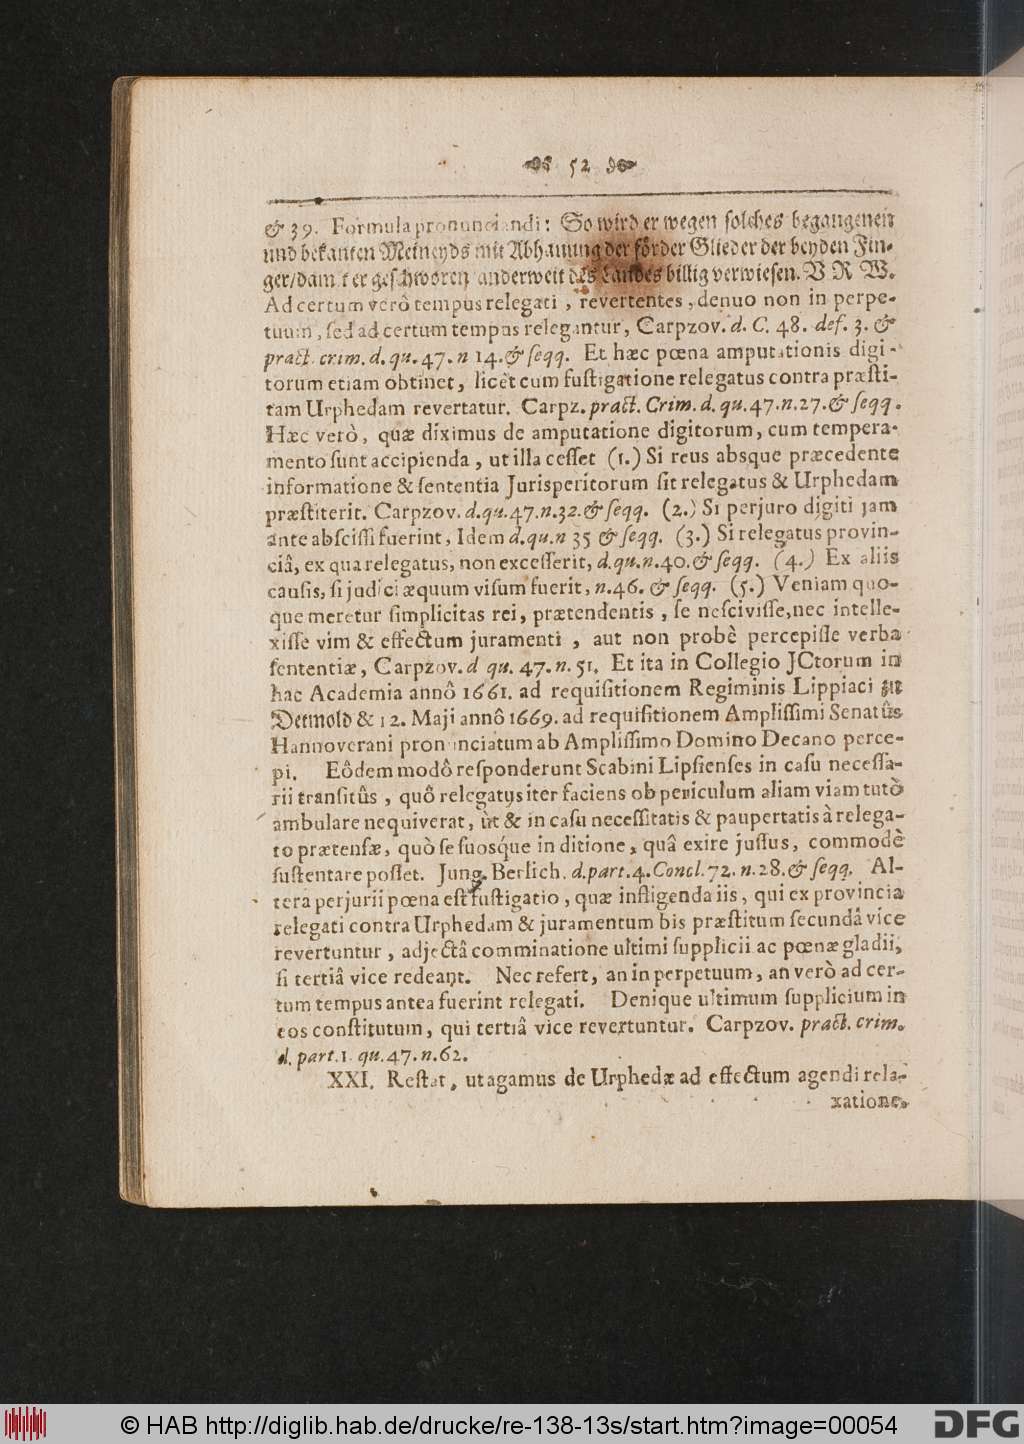 52
& 39. Formula pronunciandi: So wird er wegen solches begangenen
und bekanten Meineyds mit Abhauung der förder Glieder der beyden Fin-
ger/damit er geschworen anderweit des Landes billig verwiesen. V R W.
Ad certum verò tempus relegati, revertentes, denuo non in perpe-
tuum, sed ad certum tempus relegantur, Carpzov. d. C. 48. def. 3. &
pract. crim. d. qu. 47. n 14. & seqq. Et hæc pœna amputationis digi-
torum etiam obtinet, licèt cum fustigatione relegatus contra præsti-
tam Urphedam revertatur. Carpz. pract. Crim. d. qu. 47. n. 27. & seqq.
Hæc verò, quæ diximus de amputatione digitorum, cum tempera-
mento sunt accipienda, ut illa cesset (1.) Si reus absque præcedente
informatione & sententia Jurisperitorum sit relegatus & Urphedam
præstiterit. Carpzov. d. qu. 47. n. 32. & seqq. (2.) Si perjuro digiti jam
ante abscissi fuerint, Idem d. qu. n 35 & seqq. (3.) Si relegatus provin-
ciâ, ex qua relegatus, non excesserit, d. qu. n. 40. & seqq. (4.) Ex aliis
causis, si judici æquum visum fuerit, n. 46. & seqq. (5.) Veniam quo-
que meretur simplicitas rei, prætendentis, se nescivisse, nec intelle-
xisse vim & effectum juramenti, aut non probè percepisse verba
sententiæ, Carpzov. d qu. 47. n. 51. Et ita in Collegio JCtorum in
hac Academia annô 1661. ad requisitionem Regiminis Lippiaci zu
Detmold & 12. Maji annô 1669. ad requisitionem Amplissimi Senatûs
Hannoverani pronunciatum ab Amplissimo Domino Decano perce-
pi. Eôdem modô responderunt Scabini Lipsienses in casu necessa-
rii transitûs, quô relegatus iter faciens ob periculum aliam viam tutò
ambulare nequiverat, ùt & in casu necessitatis & paupertatis à relega-
to prætensæ, quò se suosque in ditione, quâ exire jussus, commodè
sustentare posset. Jung. Berlich. d. part. 4. Concl. 72. n. 28. & seqq. Al-
tera perjurii pœna est fustigatio, quæ infligenda iis, qui ex provincia
relegati contra Urphedam & juramentum bis præstitum secundâ vice
revertuntur, adjectâ comminatione ultimi supplicii ac pœnæ gladii,
si tertiâ vice redeant. Nec refert, an in perpetuum, an verò ad cer-
tum tempus antea fuerint relegati. Denique ultimum supplicium in
eos constitutum, qui tertiâ vice revertuntur. Carpzov. pract. crim.
d. part. 1. qu. 47. n. 62.
XXI. Restat, ut agamus de Urphedæ ad effectum agendi rela-
xatione.
© HAB http://diglib.hab.de/drucke/re-138-13s/start.htm?image=00054
DFG